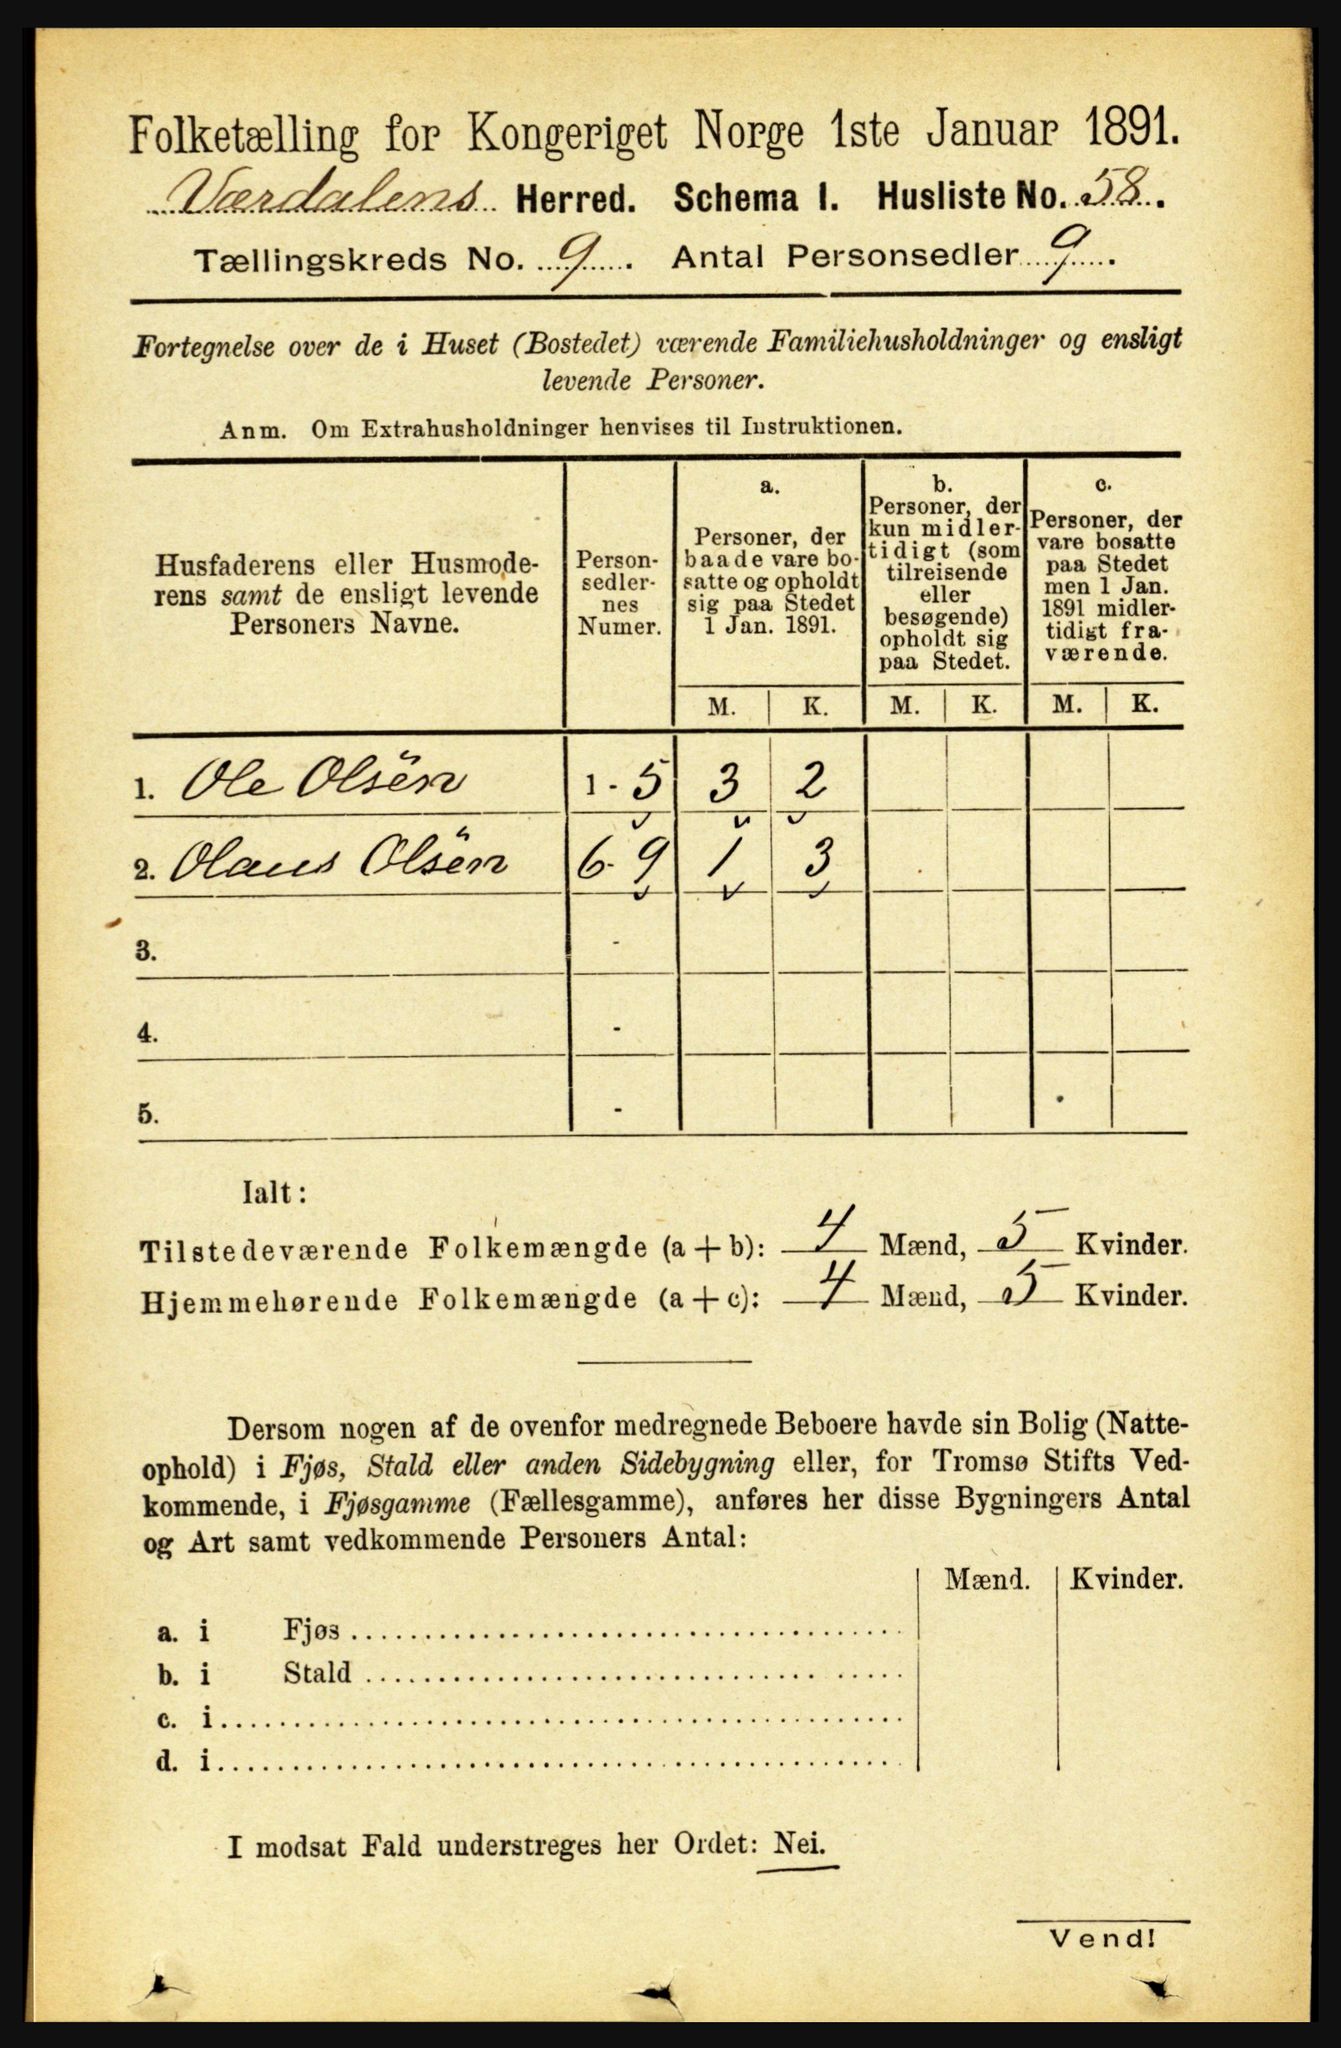 Folketælling for Kongeriget Norge 1ste Januar 1891.
Værdalens Herred. Schema 1. Husliste No. 58.
Tællingskreds No. 9. Antal Personsedler 9.
Fortegnelse over de i Huset (Bostedet) værende Familiehusholdninger og ensligt
levende Personer.
Anm. Om Extrahusholdninger henvises til Instruktionen.
Husfaderens eller Husmode-
rens samt de ensligt levende
Personers Navne.
Person-
sedler-
nes
Numer.
a.
Personer, der
baade vare bo-
satte og opholdt
sig paa Stedet
1 Jan. 1891.
b.
Personer, der
kun midler-
tidigt (som
tilreisende
eller
besøgende)
opholdt sig
paa Stedet.
c.
Personer, der
vare bosatte
paa Stedet
men 1 Jan.
1891 midler-
tidigt fra-
værende.
M. K. M. K. M. K.
1. Ole Olsen 1 - 5 3 2
2. Olaus Olsen 6 - 9 1 3
3. -
4. -
5. -
Ialt:
Tilstedeværende Folkemængde (a + b): 4 Mænd, 5 Kvinder.
Hjemmehørende Folkemængde (a + c): 4 Mænd, 5 Kvinder.
Dersom nogen af de ovenfor medregnede Beboere havde sin Bolig (Natte-
ophold) i Fjøs, Stald eller anden Sidebygning eller, for Tromsø Stifts Ved-
kommende, i Fjøsgamme (Fællesgamme), anføres her disse Bygningers Antal
og Art samt vedkommende Personers Antal:
Mænd. Kvinder.
a. i Fjøs
b. i Stald
c. i
d. i
I modsat Fald understreges her Ordet: Nei.
Vend!